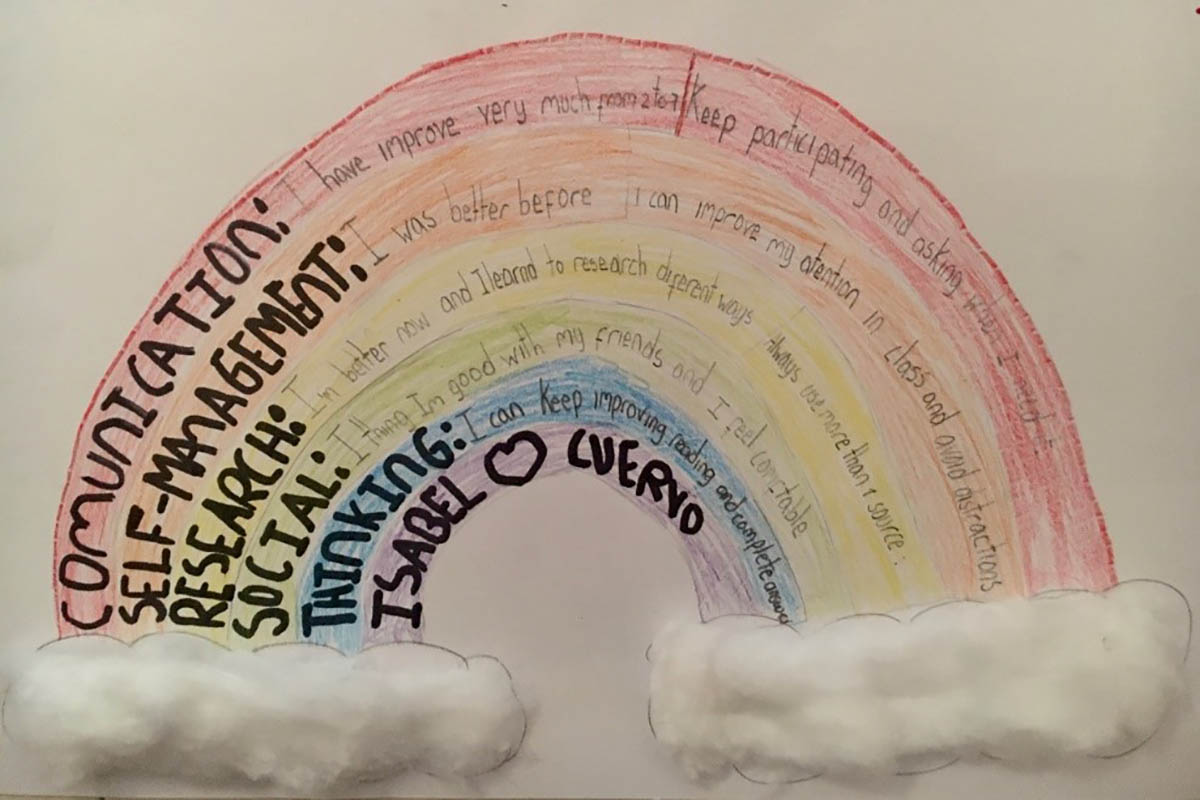 COMUNICATION: I have improve very much from 2 to 7 Keep participating and asking when I need it
SELF-MANAGEMENT: I was better before I can improve my atention in class and avoid distractions
RESEARCH: I'm better now and I learnd to research diferent ways Always use more than 1 source.
SOCIAL: I thing Im good with my friends and I feel comfctable
THINKING: I can Keep improving reading and complete
ISABEL CUERVO